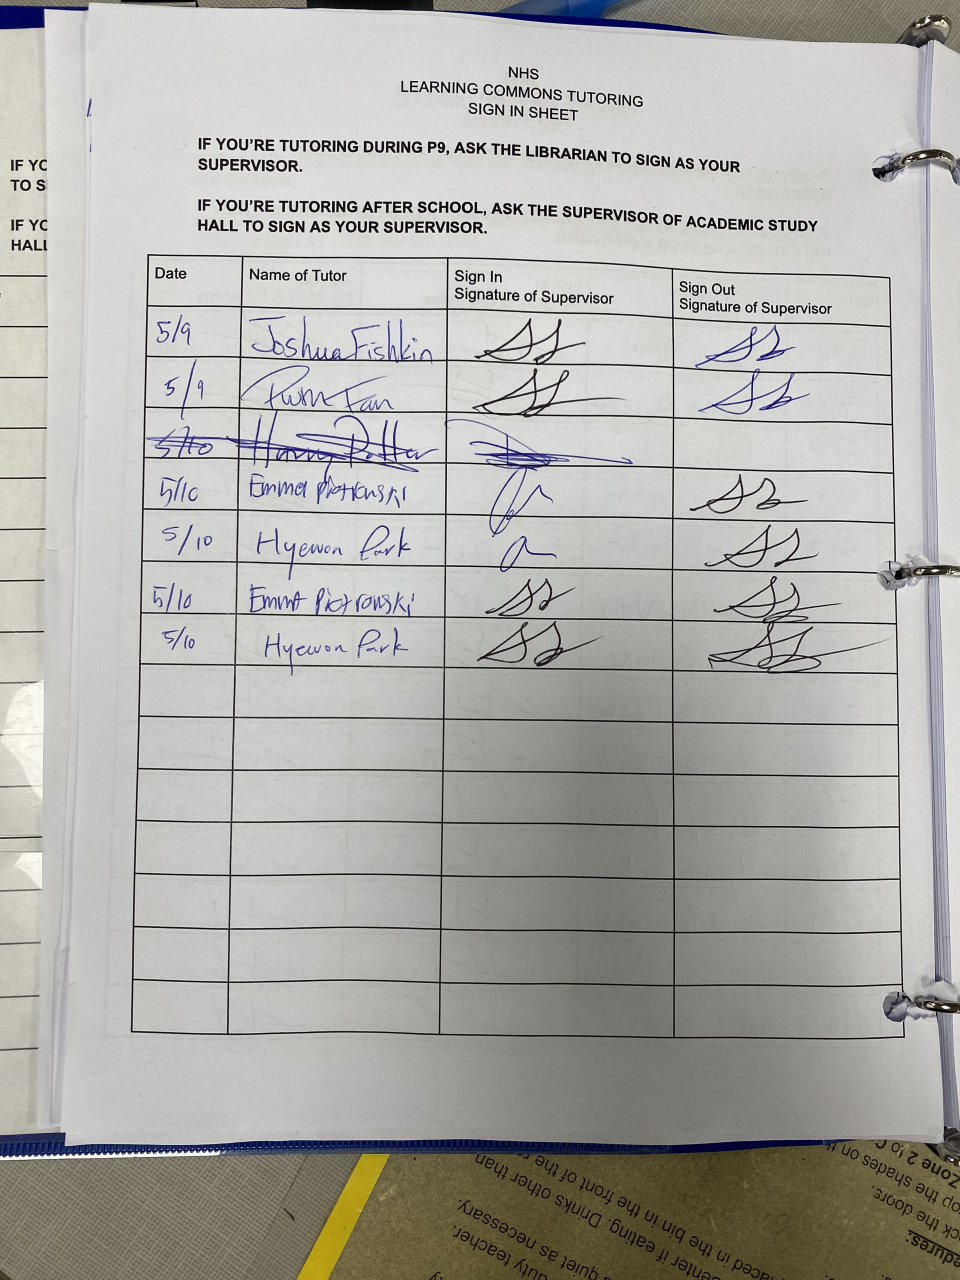 NHS
LEARNING COMMONS TUTORING
SIGN IN SHEET
IF YOU'RE TUTORING DURING P9, ASK THE LIBRARIAN TO SIGN AS YOUR
SUPERVISOR.
IF YOU'RE TUTORING AFTER SCHOOL, ASK THE SUPERVISOR OF ACADEMIC STUDY
HALL TO SIGN AS YOUR SUPERVISOR.
Date Name of Tutor Sign In Signature of Supervisor Sign Out Signature of Supervisor
5/9 Joshua Fishkin
5/9 Fan
5/10 Harry Potter
5/10 Emma Piotrowski
5/10 Hyewon Park
5/10 Emma Piotrowski
5/10 Hyewon Park
IF YO
TO S
IF YO
HALL
Zone 2 to C
the shades on th
ck the doors.
edures:
in the bin in the front of the
center if eating. Drinks other than
quiet as necessary.
duty teacher.